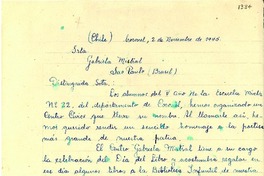 1384
(Chile) Coronel, 2 de Noviembre de 1945
Srta
Gabriela Mistral
Sao Paulo (Brasil)
Distinguida Srta.:
Los alumnos del V Año de la Escuela Mixta
Nº 22, del departamento de Coronel, hemos organizado un
Centro que lleve su nombre. Al llamarle así, he-
mos querido rendir un sencillo homenaje a la poetisa
más grande de nuestra patria.
El Centro Gabriela Mistral tiene a su cargo
la celebración del Día del Libro y acostumbra regalar en
ese día algunos libros a la Biblioteca Infantil de nuestra